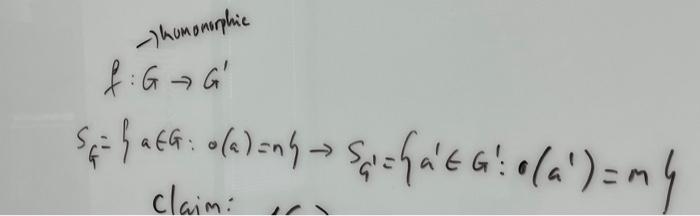 →homomorphic
f : G → G'
S_G = { a ∈ G : o(a) = n } → S_G' = { a' ∈ G' : o(a') = n }
claim: